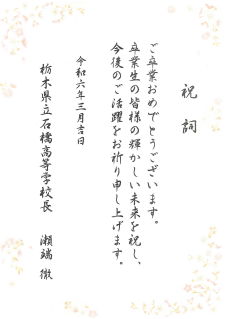 祝詞
ご卒業おめでとうございます。
卒業生の皆様の輝かしい未来を祝し、
今後のご活躍をお祈り申し上げます。
令和六年三月吉日
栃木県立石橋高等学校長 瀬端 徹